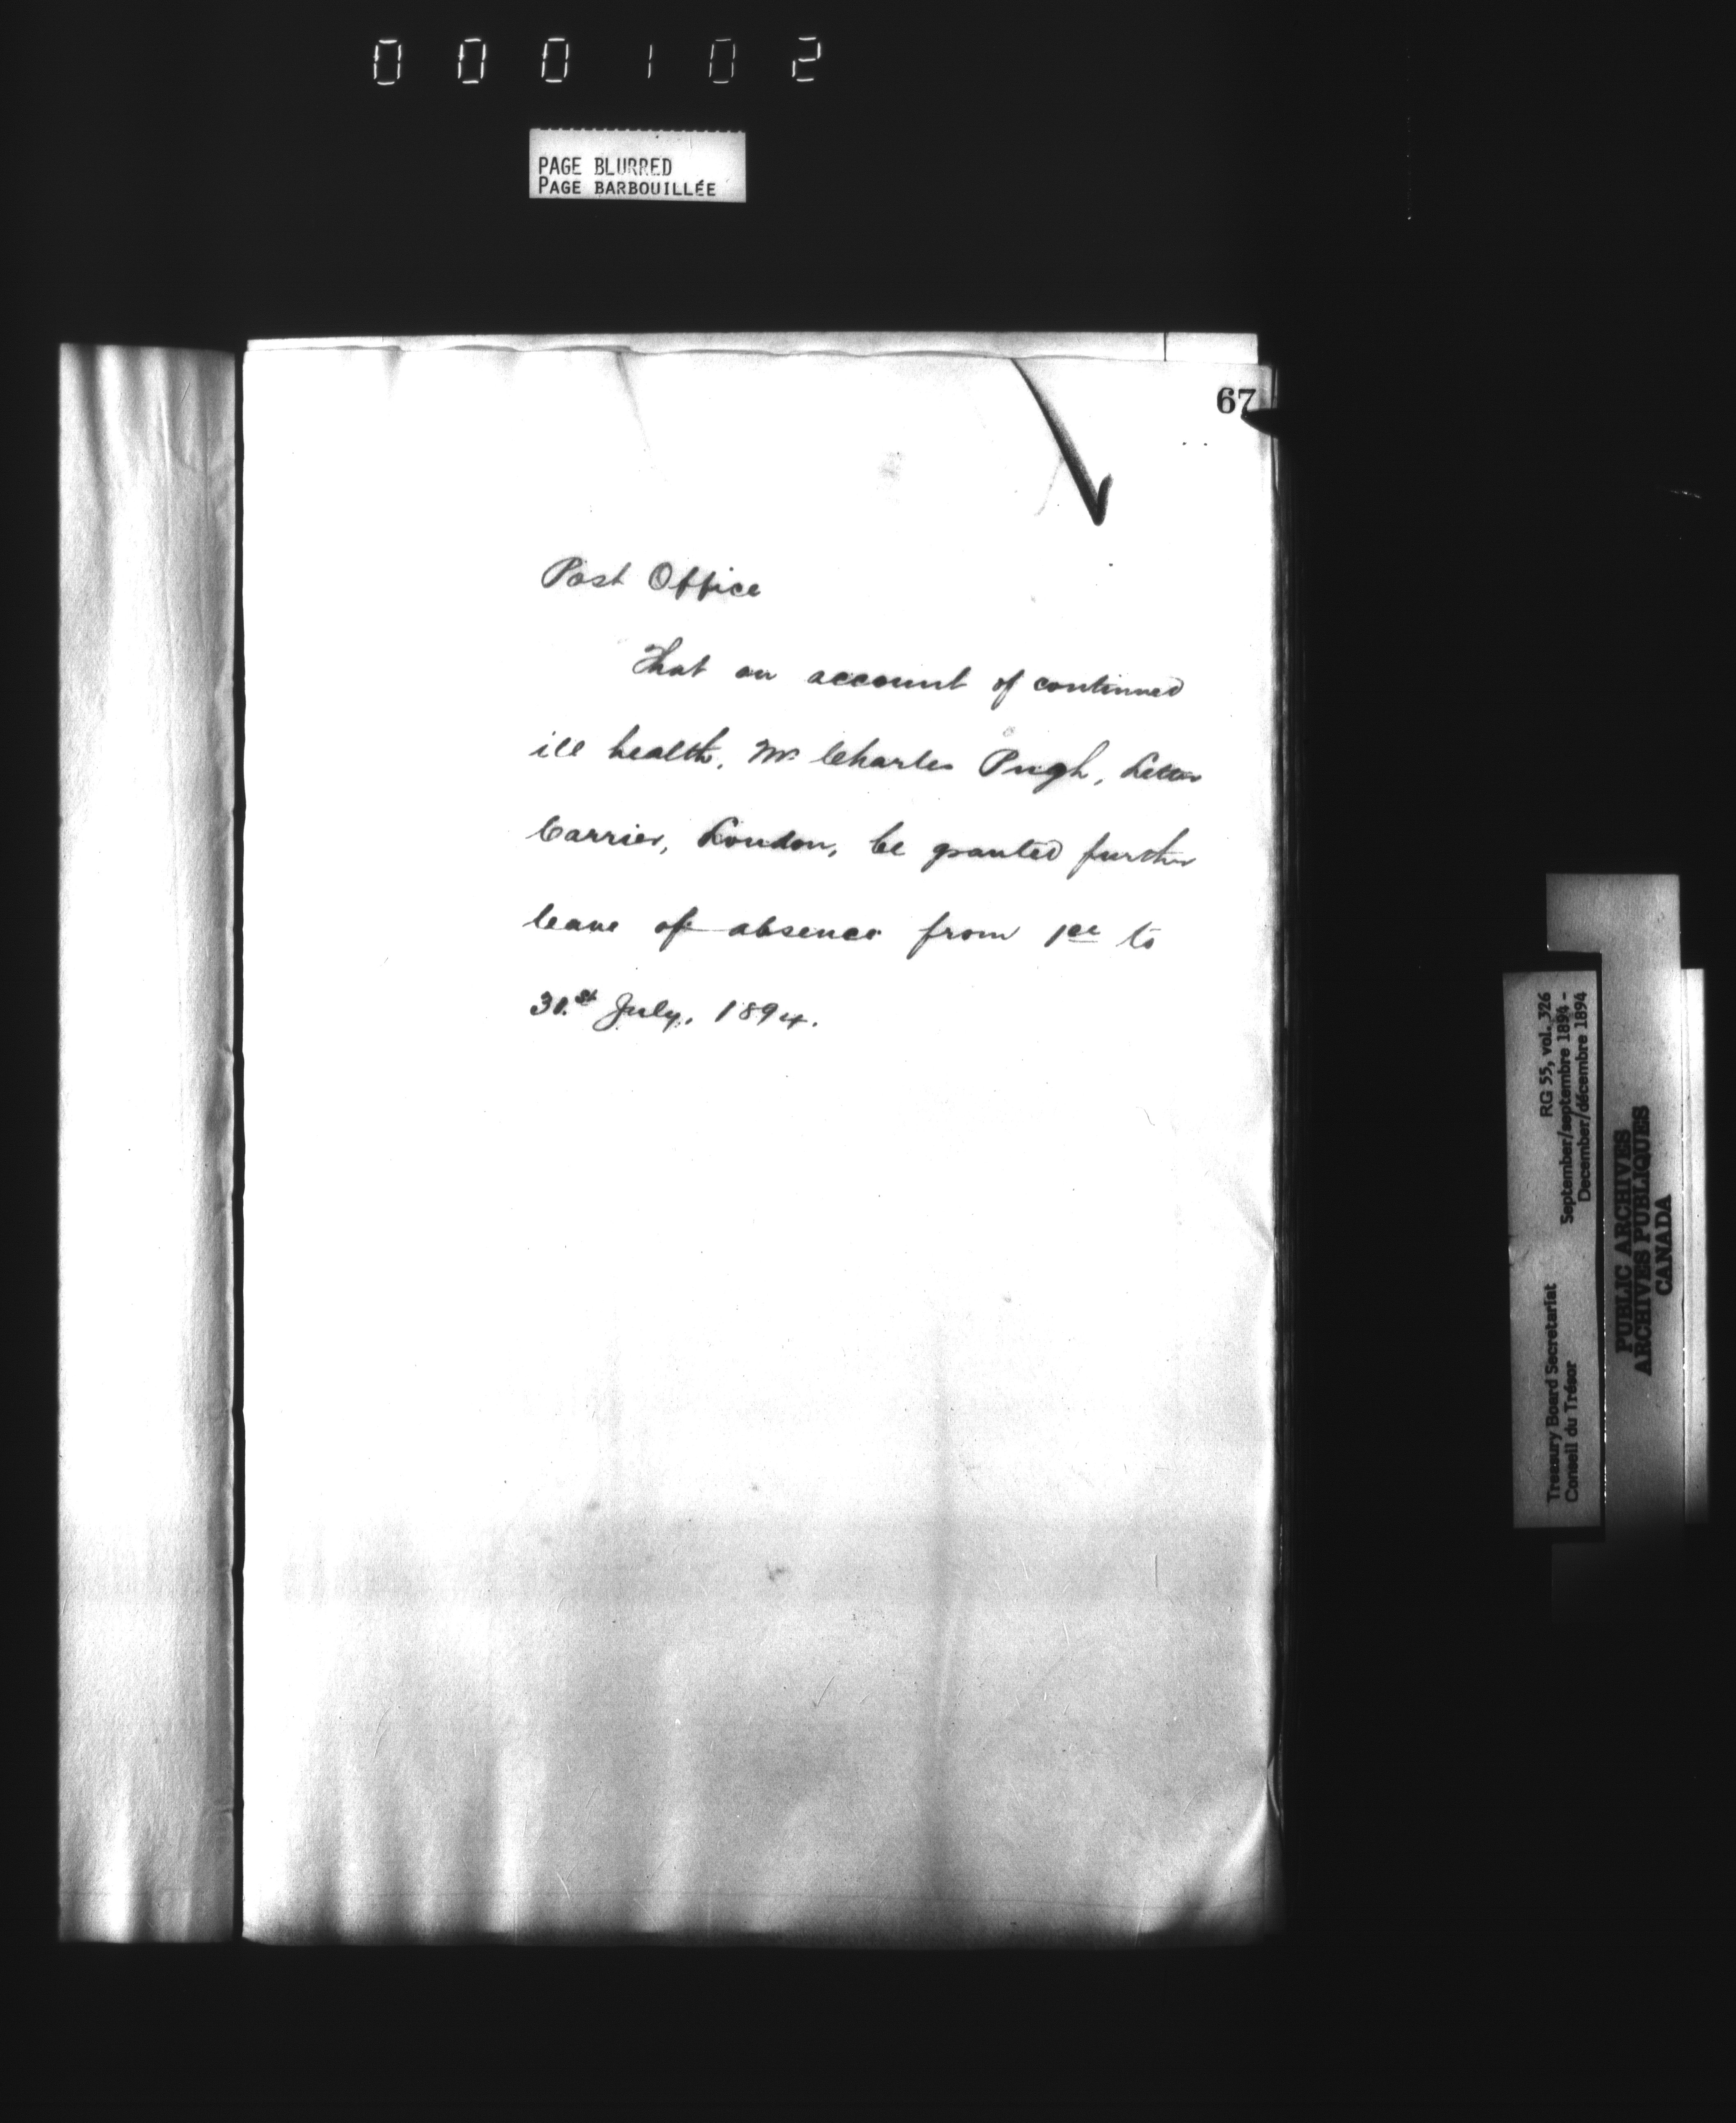 000102
PAGE BLURRED
PAGE BARBOUILLÉE
67
Post Office
That on account of continued
ill health, Mr Charles Pugh, Letter
Carrier, London, be granted further
leave of absence from 1st to
31st July, 1894.
Treasury Board Secretariat RG 55, vol. 326
Conseil du Trésor September/septembre 1894 -
December/décembre 1894
PUBLIC ARCHIVES
ARCHIVES PUBLIQUES
CANADA